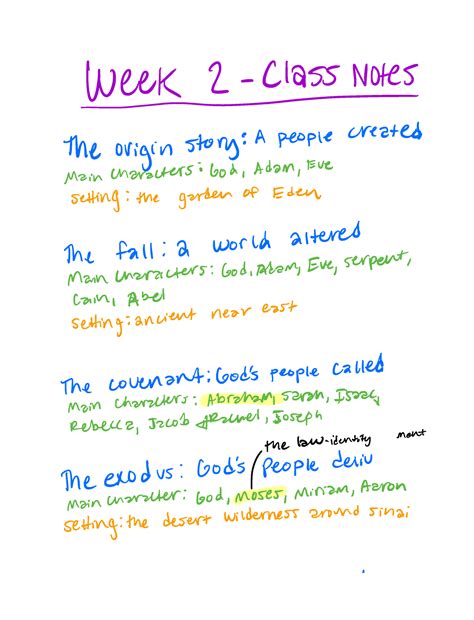 Week 2 - Class Notes
The origin story: A people created
Main Characters: God, Adam, Eve
setting: the garden of Eden
The fall: a world altered
Main Characters: God, Adam, Eve, serpent,
Cain, Abel
setting: ancient near east
The covenant: God's people called
Main Characters: Abraham, Sarah, Isaac,
Rebecca, Jacob + Rachel, Joseph
the law - identity
The exodus: God's People deliv
Main Character: God, Moses, Miriam, Aaron
setting: the desert wilderness around sinai